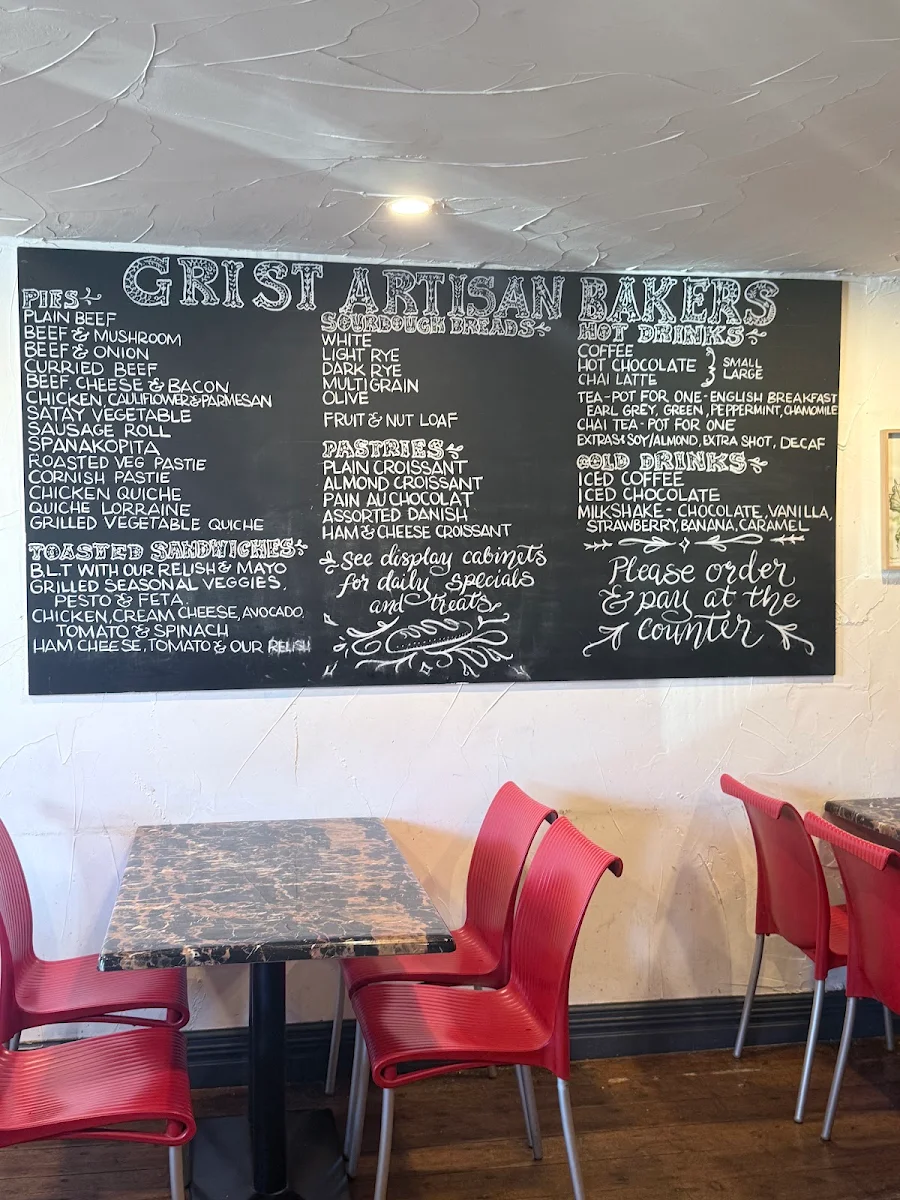 GRIST ARTISAN BAKERS
PIES
PLAIN BEEF
BEEF & MUSHROOM
BEEF & ONION
CURRIED BEEF
BEEF, CHEESE & BACON
CHICKEN, CAULIFLOWER & PARMESAN
SATAY VEGETABLE
SAUSAGE ROLL
SPANAKOPITA
ROASTED VEG PASTIE
CORNISH PASTIE
CHICKEN QUICHE
QUICHE LORRAINE
GRILLED VEGETABLE QUICHE
TOASTED SANDWICHES
B.L.T WITH OUR RELISH & MAYO
GRILLED SEASONAL VEGGIES,
PESTO & FETA
CHICKEN, CREAM CHEESE, AVOCADO,
TOMATO & SPINACH
HAM, CHEESE, TOMATO & OUR RELISH
SOURDOUGH BREADS
WHITE
LIGHT RYE
DARK RYE
MULTIGRAIN
OLIVE
FRUIT & NUT LOAF
PASTRIES
PLAIN CROISSANT
ALMOND CROISSANT
PAIN AU CHOCOLAT
ASSORTED DANISH
HAM & CHEESE CROISSANT
See display cabinets
for daily specials
and treats
HOT DRINKS
COFFEE
HOT CHOCOLATE
CHAI LATTE
SMALL
LARGE
TEA - POT FOR ONE - ENGLISH BREAKFAST
EARL GREY, GREEN, PEPPERMINT, CHAMOMILE
CHAI TEA - POT FOR ONE
EXTRAS: SOY/ALMOND, EXTRA SHOT, DECAF
COLD DRINKS
ICED COFFEE
ICED CHOCOLATE
MILKSHAKE - CHOCOLATE, VANILLA,
STRAWBERRY, BANANA, CARAMEL
Please order
& pay at the
counter